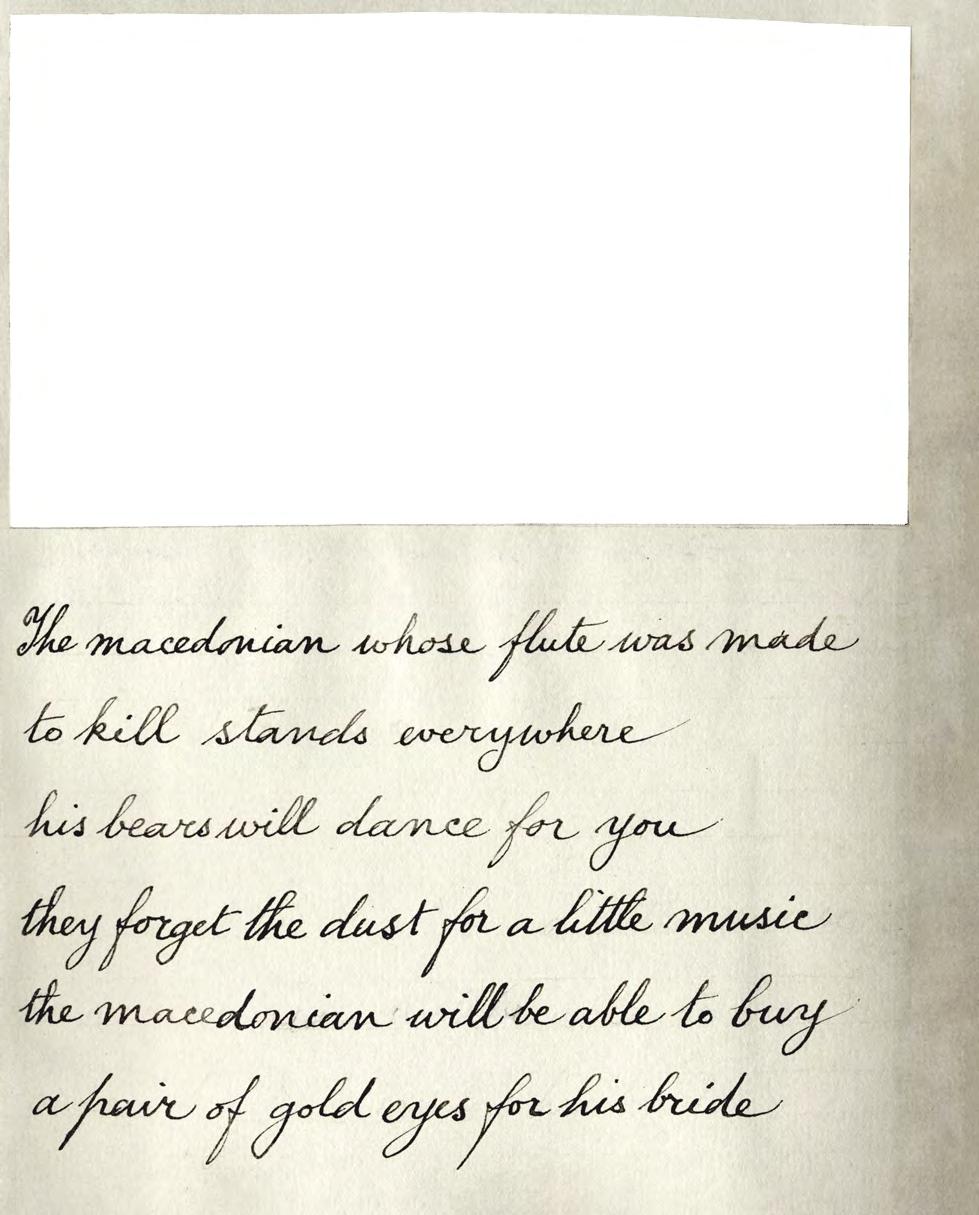 The macedonian whose flute was made
to kill stands everywhere
his bears will dance for you
they forget the dust for a little music
the macedonian will be able to buy
a pair of gold eyes for his bride